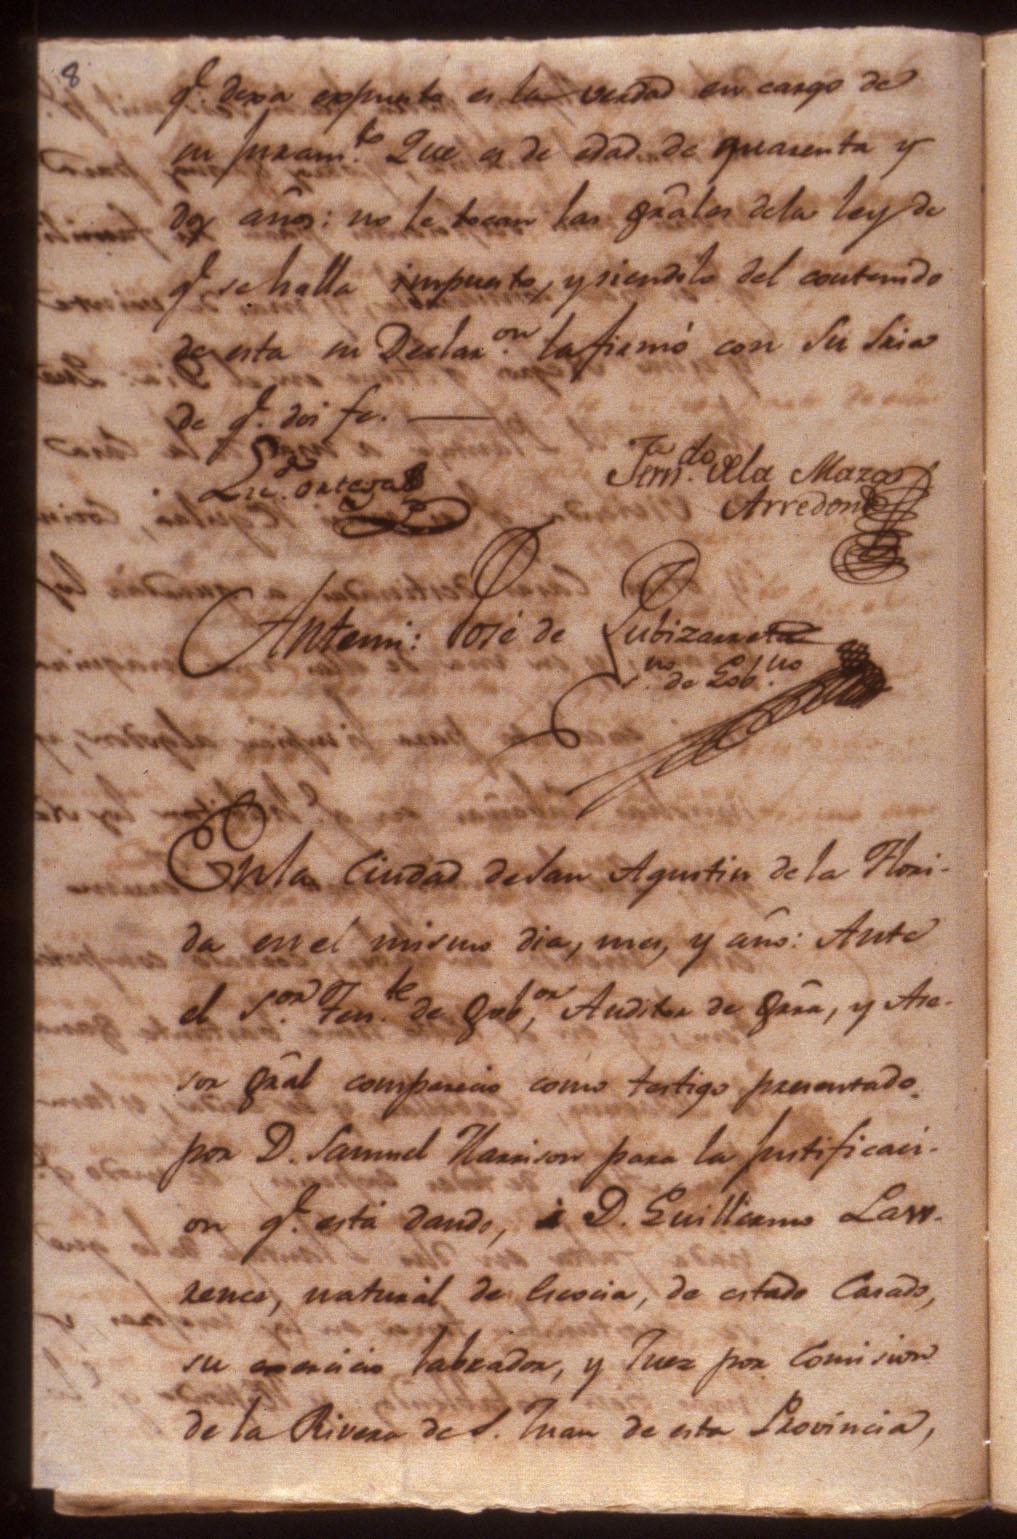 8
q.e dexa expuesto es la verdad en cargo de
su juram.to Que es de edad de quarenta y
dos años: no le tocan las grâles dela ley de
q.e se halla impuesto, y siendolo del contenido
de esta su Declar.on la firmó con Su Sria
de q.e doi fe.
Lic.do Ortega
Fern.do dela Maza
Arredondo
Antemi: José de Zubizarreta
no. de Gob.no
En la Ciudad de San Agustin de la Flori-
da en el mismo dia, mes, y año: Ante
el S.or Ten.te de Gob.or, Auditor de grrâ, y Ase-
sor grâl comparecio como testigo presentado
por D. Samuel Harrison para la justificaci-
on q.e está dando, á D. Guillermo Law-
rence, naturál de Escocia, de estado Casado,
su exercicio labrador, y Juez por Comision
de la Rivera de S. Juan de esta Provincia,